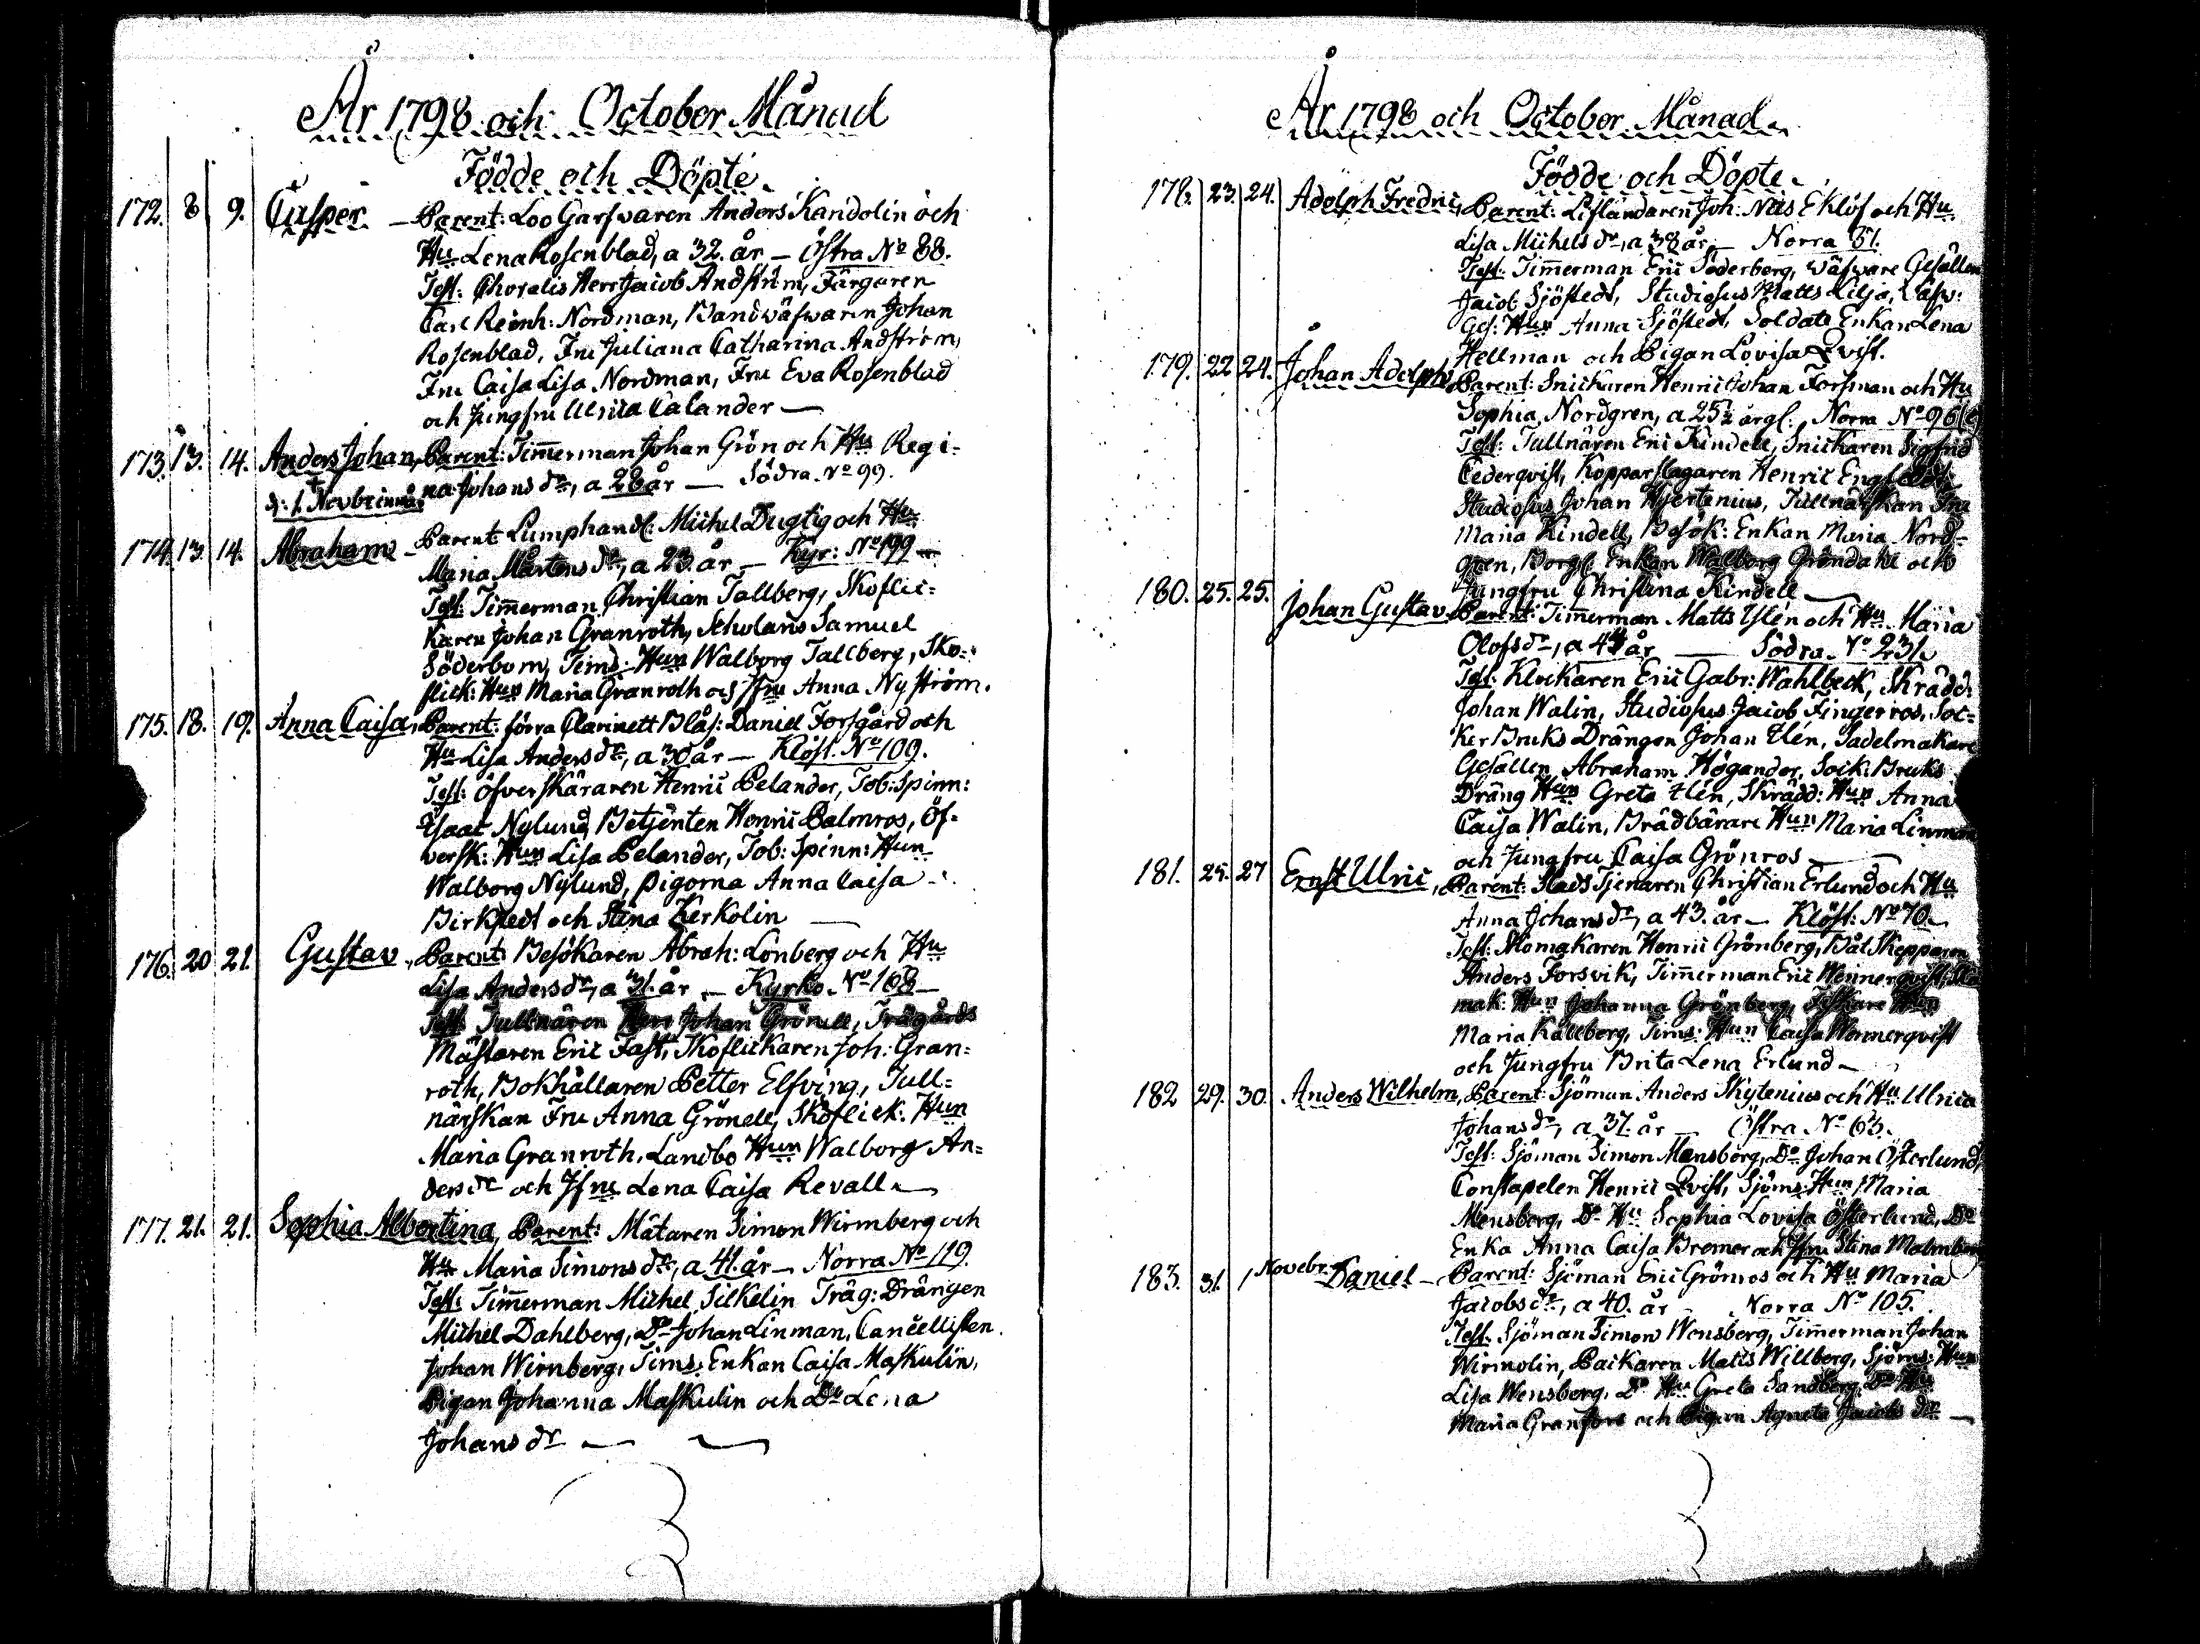 År 1798 och October Månad
Födde och Döpte.
172. 8 9. Casper — Parent: Loo Garfvaren Anders Kandolin och
Hu Lena Rosenblad, a 32. år — Östra No 88.
Test: Choralis Herr Jacob Andström, Färgaren
Carl Reinh: Nordman, Bandväfvaren Johan
Rosenblad, Fru Juliana Catharina Andström,
Fru Caisa Lisa Nordman, Fru Eva Rosenblad
och Jungfru Ulrica Calander —
173. 13. 14. Anders Johan, Parent: Timerman Johan Grön och Hu Regi-
na Johans dr, a 28 år — Södra No 99.
174. 13. 14. Abraham — Parent Lumphandl: Michel Dugtig och Hu
Maria Mårtens dr, a 23. år — Kyr: No 199 —
Test: Timerman Christian Tallberg, Skoflic=
karen Johan Granroth, Scholaris Samuel
Söderbom, Timd: Hun Walborg Tallberg, Sko=
flick: Hun Maria Granroth och Jfru Anna Nyström.
175. 18. 19. Anna Caisa, Parent: förra Clarinett Blås: Daniel Forsgård och
Hu Lisa Anders dr, a 30 år — Klöst. No 109.
Test: Öfverskäraren Henric Pelander, Tob: Spinn:
Isaac Nylund, Betjenten Henric Palmros, Öf-
versk: Hun Lisa Pelander, Tob: Spinn: Hun
Walborg Nylund, pigorna Anna Caisa
Birkstedt och Stina Kerkolin —
176. 20 21. Gustav, Parent: Besökaren Abrah: Lönberg och Hu
Lisa Anders dr, a 31. år — Kyrko No 168 —
Test: Tullnären Herr Johan Grönell, Trägårds
Mästaren Eric Fast, Skoflickaren Joh: Gran=
roth, Bokhållaren Petter Elfving, Tull=
närskan Fru Anna Grönell, Skoflick: Hun
Maria Granroth, Landbo Hun Walborg An=
ders dr och Jfru Lena Caisa Revall —
177. 21. 21. Sophia Albertina, Parent: Mätaren Simon Wirmberg och
Hu Maria Simons dr, a 41. år — Norra No 119.
Test: Timerman Michel Silkelin Träg: Drängen
Michel Dahlberg, Do Johan Linman, Cancellisten
Johan Wirnberg, Tims: Enkan Caisa Maskulin,
Pigan Johanna Maskulin och Do Lena
Johans dr —
År 1798 och October Månad
Födde och Döpte.
178. 23. 24. Adolph Fredric, Parent: Lifländaren Joh: Nils Eklöf och Hu
Lisa Michels dr, a 38 år — Norra 51.
Test: Timerman Eric Söderberg, Väfvare Gesällen
Jacob Sjöstedt, Studiosus Matts Lilja, Väfv:
Ges: Hun Anna Sjöstedt, Soldats Enkan Lena
Hellman och Pigan Lovisa Qvist.
179. 22 24. Johan Adolph, Parent: Snickaren Henric Johan Forsman och Hu
Sophia Nordgren, a 25½ årgl: Norra No 96
Test: Tullnären Eric Kindell, Snickaren Sigfrid
Cederqvist, Kopparslagaren Henric
Studiosus Johan Hjertenius, Tullnärskan Fru
Maria Kindell, Besök: Enkan Maria Nord=
gren, Borgl: Enkan Walborg Gröndahl och
Jungfru Christina Kindell —
180. 25. 25. Johan Gustav, Parent: Timerman Matts Ulén och Hu Maria
Olofs dr, a 44 år — Södra No 231.
Test: Klockaren Eric Gabr: Wahlbeck, Skrädd:
Johan Walin, Studiosus Jacob Fingerroos, Soc=
ker Bruks Drängen Johan Ulén, Sadelmakare
Gesällen Abraham Högander, Sock: Bruks
Dräng Hun Greta Ulén, Skrädd: Hun Anna
Caisa Walin, Brädbärare Hun Maria Linman
och Jungfru Caisa Grönros —
181. 25. 27 Ernst Ulric, Parent: Stads Tjenaren Christian Erlund och Hu
Anna Johans dr, a 43. år — Klöst: No 70.
Test: Skomakaren Henric Grönberg, Båt Skepparen
Anders Forsvik, Timerman Eric Wennerqvist, Sko
mak: Hun Johanna Grönberg, Fiskare Hun
Maria Källberg, Tims: Hun Caisa Wennerqvist
och Jungfru Brita Lena Erlund —
182 29. 30. Anders Wilhelm, Parent: Sjöman Anders Skytenius och Hu Ulrica
Johans dr, a 37. år — Östra No 63.
Test: Sjöman Simon Mensberg, Do Johan Österlund,
Constapelen Henric Qvist, Sjöms: Hun Maria
Mensberg, Do Hu Sophia Lovisa Österlund, Do
Enka Anna Caisa Bremer och Jfru Stina Malmberg
183. 31. 1 Novebr. Daniel — Parent: Sjöman Eric Grönros och Hu Maria
Jacobs dr, a 40. år Norra No 105.
Test: Sjöman Simon Wensberg, Timerman Johan
Wirmolin, Packaren Matts Willberg, Sjöms: Hun
Lisa Wensberg, Do Hu Greta Sandberg, Do Hu
Maria Granfors och Pigan Agneta Jacobs dr —